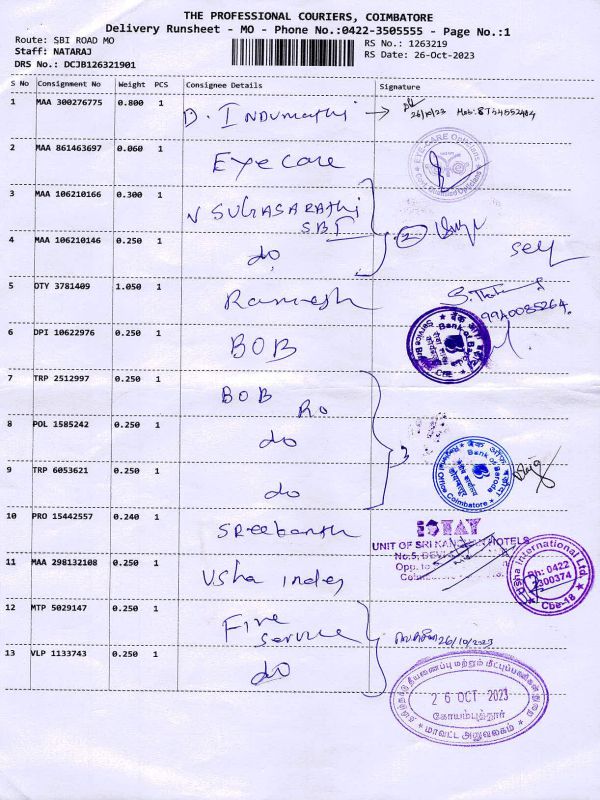 THE PROFESSIONAL COURIERS, COIMBATORE
Delivery Runsheet - MO - Phone No.:0422-3505555 - Page No.:1
Route: SBI ROAD MO
RS No.: 1263219
Staff: NATARAJ
RS Date: 26-Oct-2023
DRS No.: DCJB126321901
S No Consignment No Weight PCS Consignee Details Signature
1 MAA 300276775 0.800 1 D. Indumathi → 26/10/23
2 MAA 861463697 0.060 1 Eye care
3 MAA 106210166 0.300 1 SBI
4 MAA 106210146 0.250 1 do 2
5 DTY 3781409 1.050 1 Ramesh
6 DPI 10622976 0.250 1 BOB
Bank of Baroda
7 TRP 2512997 0.250 1 BOB RO
8 POL 1585242 0.250 1 do 3
9 TRP 6053621 0.250 1 do
Bank of Baroda
Coimbatore
10 PRO 15442557 0.240 1 Sreekanth
UNIT OF SRI
11 MAA 298132108 0.250 1 Usha
Usha International Ltd.
Ph: 0422
2300374
Cbe-18
12 MTP 5029147 0.250 1 Fire service 26/10/2023
13 VLP 1133743 0.250 1 do
26 OCT 2023
கோயம்புத்தூர்
மாவட்ட அலுவலகம்